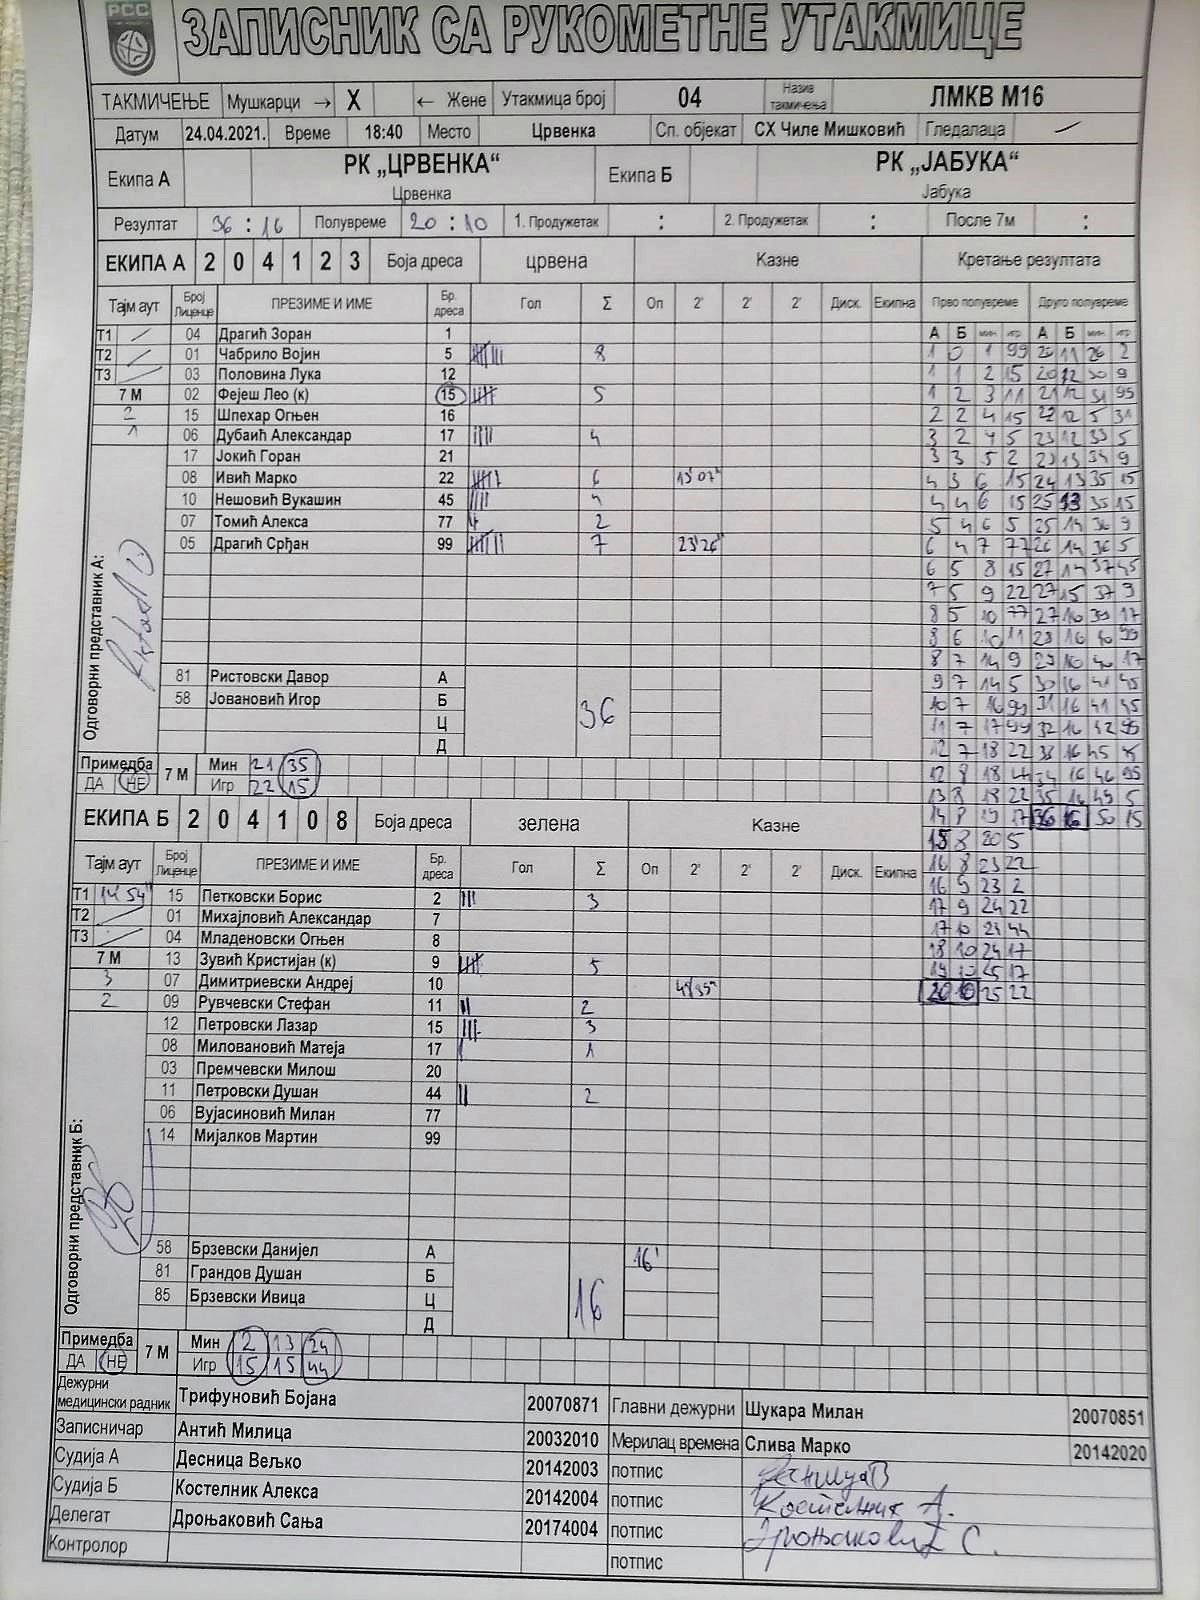 РСС
ЗАПИСНИК СА РУКОМЕТНЕ УТАКМИЦЕ
ТАКМИЧЕЊЕ Мушкарци → X ← Жене Утакмица број 04 Назив такмичења ЛМКВ М16
Датум 24.04.2021. Време 18:40 Место Црвенка Сп. објекат СХ Чиле Мишковић Гледалаца
Екипа А РК „ЦРВЕНКА“ Црвенка Екипа Б РК „ЈАБУКА“ Јабука
Резултат 36 : 16 Полувреме 20 : 10 1. Продужетак : 2. Продужетак : После 7м :
ЕКИПА А 2 0 4 1 2 3 Боја дреса црвена Казне Кретање резултата
Тајм аут Број Лиценце ПРЕЗИМЕ И ИМЕ Бр. дреса Гол Σ Оп 2' 2' 2' Диск. Екипна Прво полувреме Друго полувреме
А Б мин игр А Б мин игр
Т1 04 Драгић Зоран 1
Т2 01 Чабрило Војин 5 8
Т3 03 Половина Лука 12
7 М 02 Фејеш Лео (к) 15 5
2 15 Шпехар Огњен 16
1 06 Дубаић Александар 17 4
17 Јокић Горан 21
08 Ивић Марко 22 6 13'07"
10 Нешовић Вукашин 45 4
07 Томић Алекса 77 2
05 Драгић Срђан 99 7 23'26"
Одговорни представник А:
81 Ристовски Давор А
58 Јовановић Игор Б
Ц
Д
36
Примедба ДА НЕ 7 М Мин 21 35
Игр 22 15
ЕКИПА Б 2 0 4 1 0 8 Боја дреса зелена Казне
Тајм аут Број Лиценце ПРЕЗИМЕ И ИМЕ Бр. дреса Гол Σ Оп 2' 2' 2' Диск. Екипна
Т1 14 54" 15 Петковски Борис 2 3
Т2 01 Михајловић Александар 7
Т3 04 Младеновски Огњен 8
7 М 13 Зувић Кристијан (к) 9 5
3 07 Димитриевски Андреј 10
2 09 Рувчевски Стефан 11 2
12 Петровски Лазар 15 3
08 Миловановић Матеја 17 1
03 Премчевски Милош 20
11 Петровски Душан 44 2
06 Вујасиновић Милан 77
14 Мијалков Мартин 99
Одговорни представник Б:
58 Брзевски Данијел А 16'
81 Грандов Душан Б
85 Брзевски Ивица Ц
Д
16
Примедба ДА НЕ 7 М Мин 2 13 24
Игр 15 15 44
1 0 1 99
1 1 2 15
1 2 3 11
2 2 4 15
3 2 4 5
3 3 5 2
4 3 6 15
4 4 6 15
5 4 6 5
6 4 7 77
6 5 8 15
7 5 9 22
8 5 10 77
8 6 10 11
8 7 14 9
9 7 14 5
10 7 16 99
11 7 17 99
12 7 18 22
12 8 18 44
13 8 18 22
14 8 19 17
15 8 20 5
16 8 23 22
16 9 23 2
17 9 24 22
17 10 24 44
18 10 24 17
19 10 25 17
20 10 25 22
Дежурни медицински радник Трифуновић Бојана 20070871 Главни дежурни Шукара Милан 20070851
Записничар Антић Милица 20032010 Мерилац времена Слива Марко 20142020
Судија А Десница Вељко 20142003 потпис
Судија Б Костелник Алекса 20142004 потпис Костелник А.
Делегат Дроњаковић Сања 20174004 потпис Дроњаковић С.
Контролор потпис